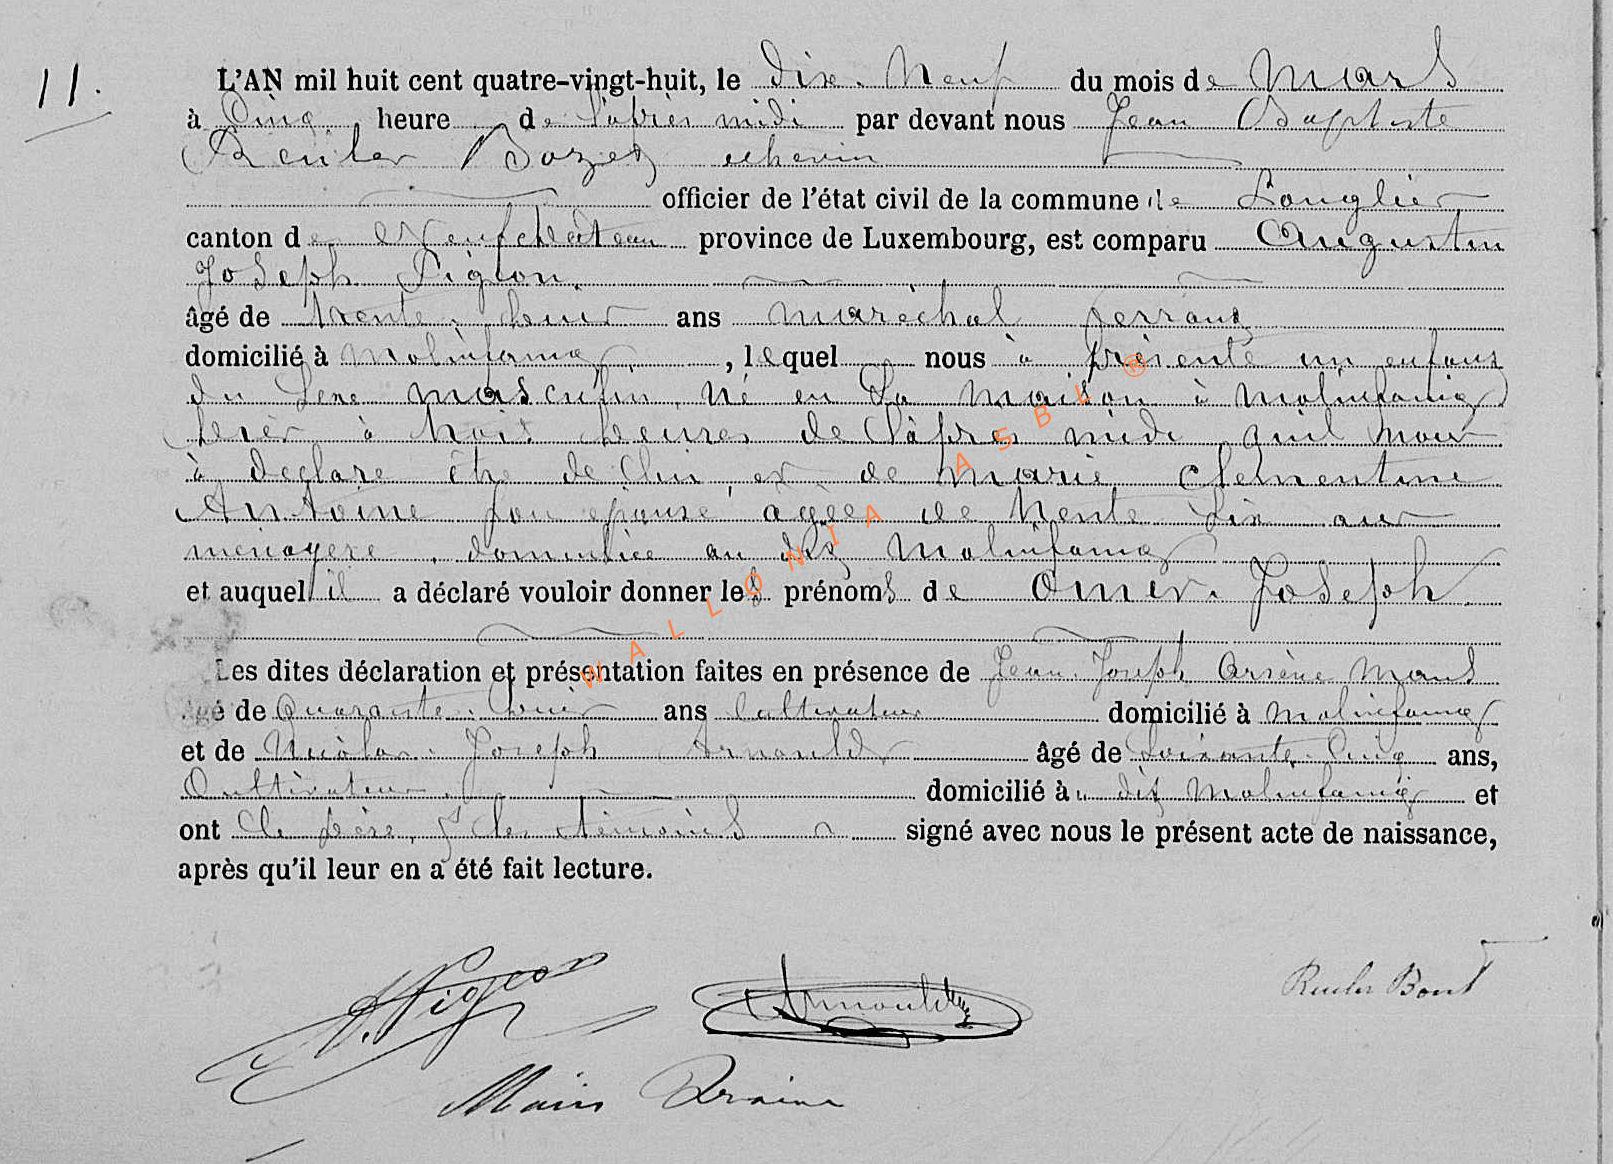 11.
L'AN mil huit cent quatre-vingt-huit, le dixe. Neuf du mois de Mars
à Cinq heure de l'après midi par devant nous Jean Baptiste
Reuler Bozet echevin
officier de l'état civil de la commune de Longlier
canton de Neufchâteau province de Luxembourg, est comparu Augustin
Joseph Pigeon.
âgé de trente. ans maréchal ferrant
domicilié à Molinfaing, lequel nous à présenté un enfant
du sexe masculin, né en sa maison à Molinfaing
hier à trois heures de l'après midi qu'il nous
à déclaré être de lui, et de Marie Clémentine
Antoine son épouse âgée de trente six ans
ménagère, domiciliée au dit Molinfaing
et auquel il a déclaré vouloir donner les prénoms de Omer. Joseph
Les dites déclaration et présentation faites en présence de Jean. Joseph Arsène
Agé de Quarante. ans Cultivateur domicilié à Molinfaing
et de Nicolas. Joseph Arnould âgé de Soixante. Cinq ans,
Cultivateur. domicilié à dit Molinfaing et
ont le père, et les témoins signé avec nous le présent acte de naissance,
après qu'il leur en a été fait lecture.
A. Pigeon Arnould Reuler
WALLONIA ASBL ®